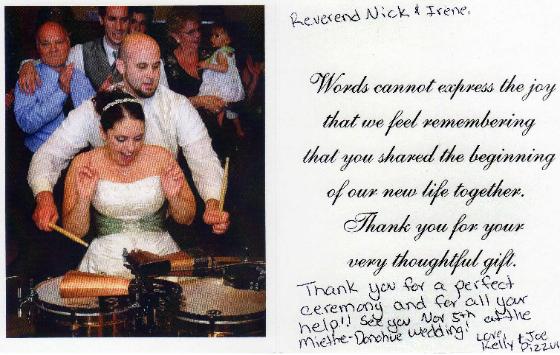 Reverend Nick & Irene.
Words cannot express the joy
that we feel remembering
that you shared the beginning
of our new life together.
Thank you for your
very thoughtful gift.
Thank you for a perfect
ceremony and for all your
help!! See you Nov 5th at the
Miethe-Donohue wedding!
Love,
Kelly & Joe